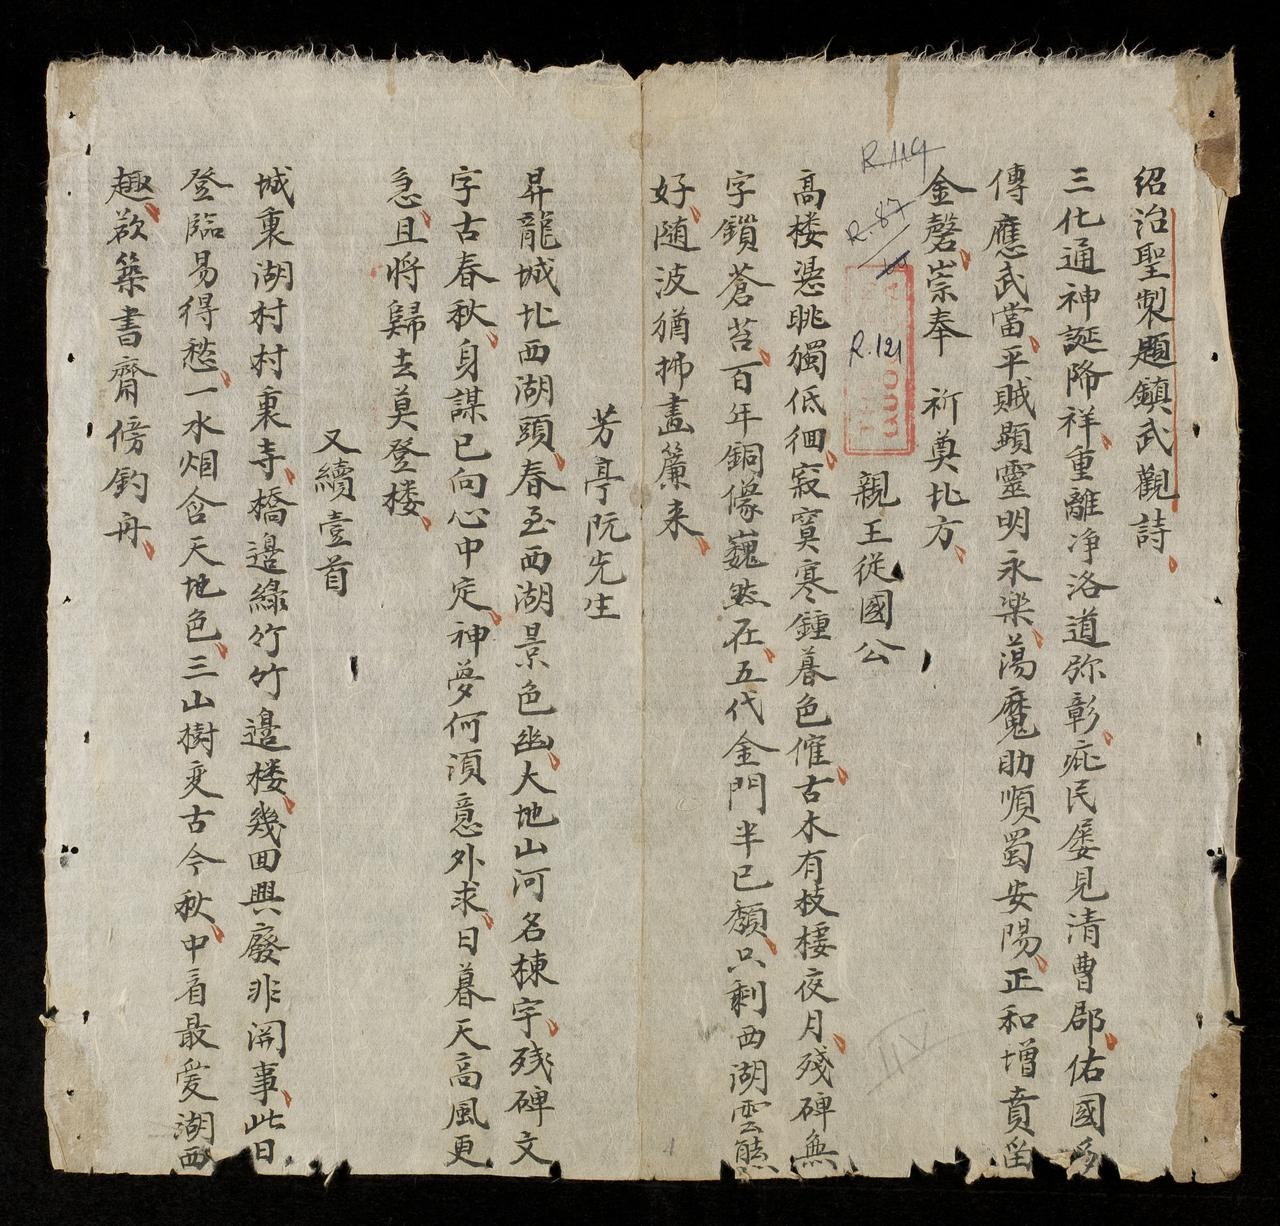 紹治聖製題鎮武觀詩
三化通神誕降祥重離净洛道弥彰庇民屡見清曹郡佑國多
傳應武當平賊顯靈明永楽蕩魔助順蜀安陽正和增賁留
金磬崇奉 祈奠北方
親王從國公
高楼憑眺獨低徊寂寞寒鍾暮色催古木有枝棲夜月殘碑無
字鎖蒼苔百年銅像巍然在五代金門半已頽只剩西湖雲態
好随波猶拂畫簾来
芳亭阮先生
昇龍城北西湖頭春至西湖景色幽大地山河名棟宇残碑文
字古春秋身謀已向心中定神夢何須意外求日暮天高風更
急且將歸去莫登楼
又續壹首
城裏湖村村裏寺橋邉綠竹竹邉楼幾回興廢非閑事此日
登臨易得愁一水烟含天地色三山樹变古今秋中看最愛湖西
趣欲築書齋傍釣舟
R.119
R.87
R.121